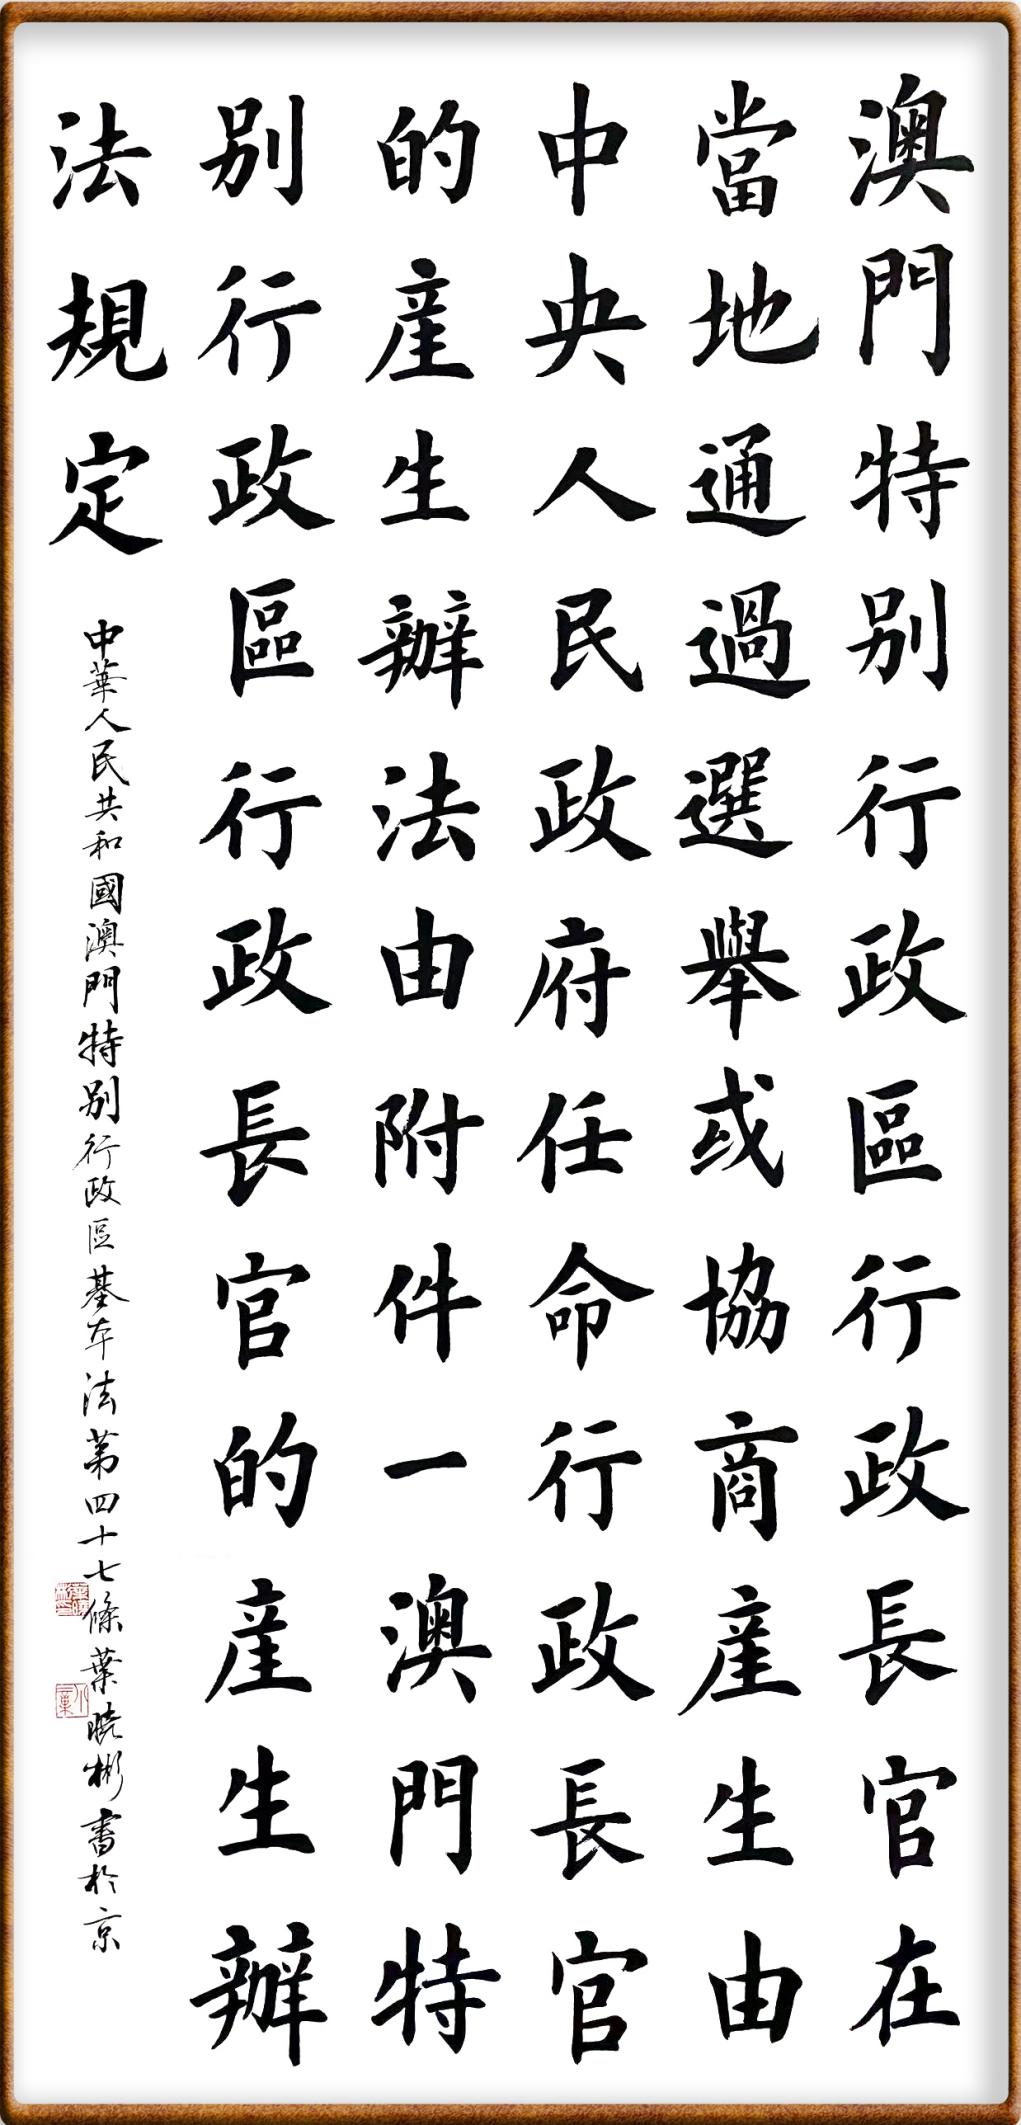 澳門特别行政區行政長官在
當地通過選舉或協商産生由
中央人民政府任命行政長官
的産生辦法由附件一澳門特
别行政區行政長官的産生辦
法規定
中華人民共和國澳門特别行政區基本法第四十七條葉曉彬書於京